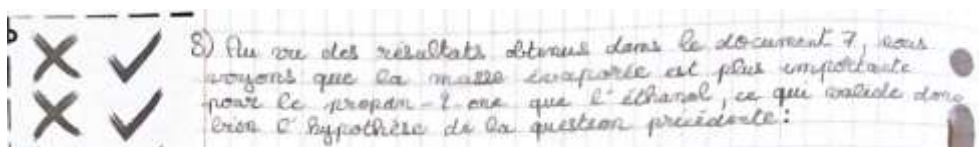 8) Au vu des résultats obtenus dans le document 7, nous
voyons que la masse évaporée est plus importante
pour le propan-2-one que l'éthanol, ce qui valide donc
bien l'hypothèse de la question précédente: